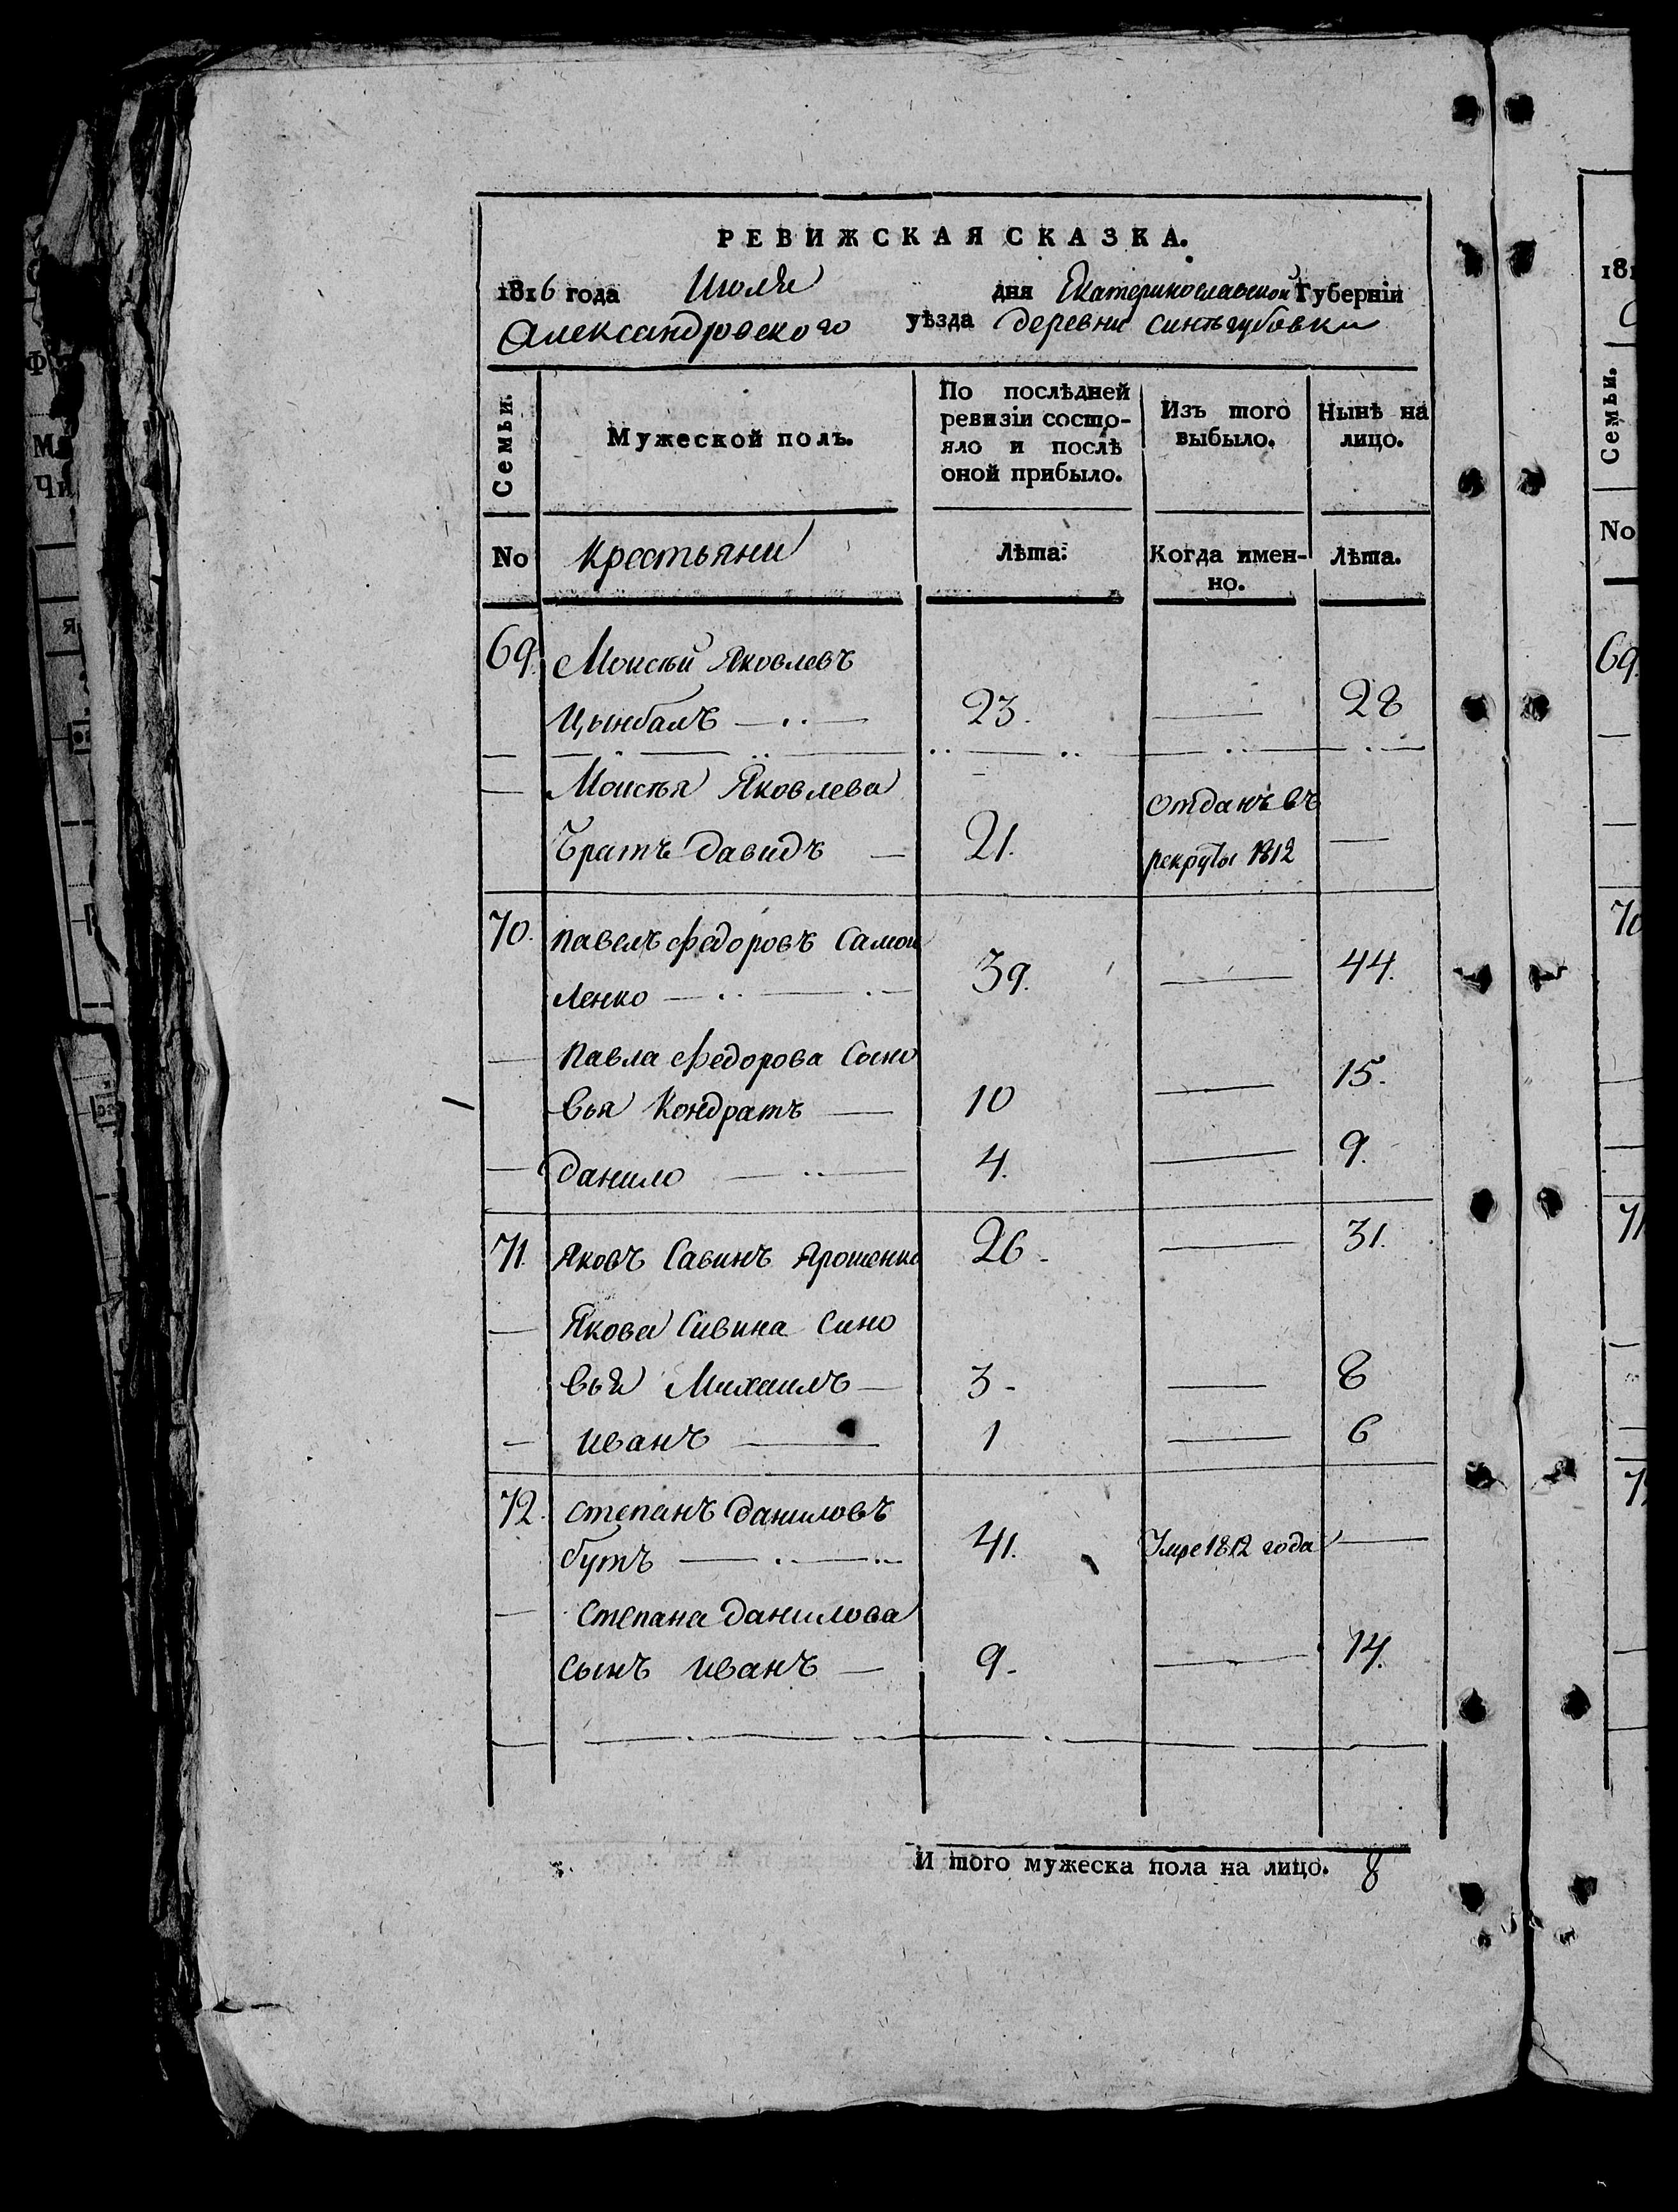 РЕВИЖСКАЯ СКАЗКА.
1816 года Июля дня Екатеринославской Губерніи
Александровского уѣзда деревни Синѣгубовки
Семьи. Мужеской полъ. По послѣдней ревизіи состояло и послѣ оной прибыло. Изъ того выбыло. Нынѣ на лицо.
No Крестьяни Лѣта: Когда именно. Лѣта.
69. Моисѣй Яковлевъ
Цынбалъ 23. 28
Моисѣя Яковлева
Братъ Давидъ 21. Отданъ въ рекруты 1812
70. Павелъ Федоровъ Самои
ленко 39. 44.
Павла Федорова Сыно
вья Кондратъ 10 15.
Данило 4. 9.
71. Яковъ Савинъ Ярошенко 26 31.
Якова Сивина Сино
вья Михаилъ 3 8
Иванъ 1 6
72. Степанъ Даниловъ
бутъ 41. Умре 1812 года
Степана Данилова
сынъ Иванъ 9 14.
И того мужеска пола на лицо. 8
181
Семьи.
No
69.
70
71